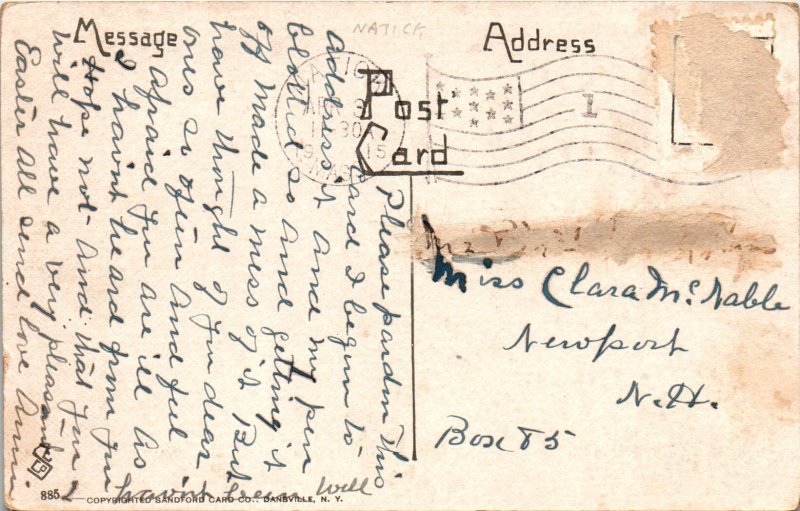 NATICK
Message
Address
Post
Card
NATICK
APR 3
11 30
1915
MASS.
1
Please pardon this
card I begun to
address it and my pen
blotted so and getting it
off made a mess of it But
have thought of you dear
ones so often and feel
afraid you are ill as
I havnt heard from you
Hope not and that you
will have a very pleasant
Easter all send love
I havnt been well
Miss Clara McNable
Newport
N. H.
Box 85
885
COPYRIGHTED SANDFORD CARD CO., DANSVILLE, N. Y.